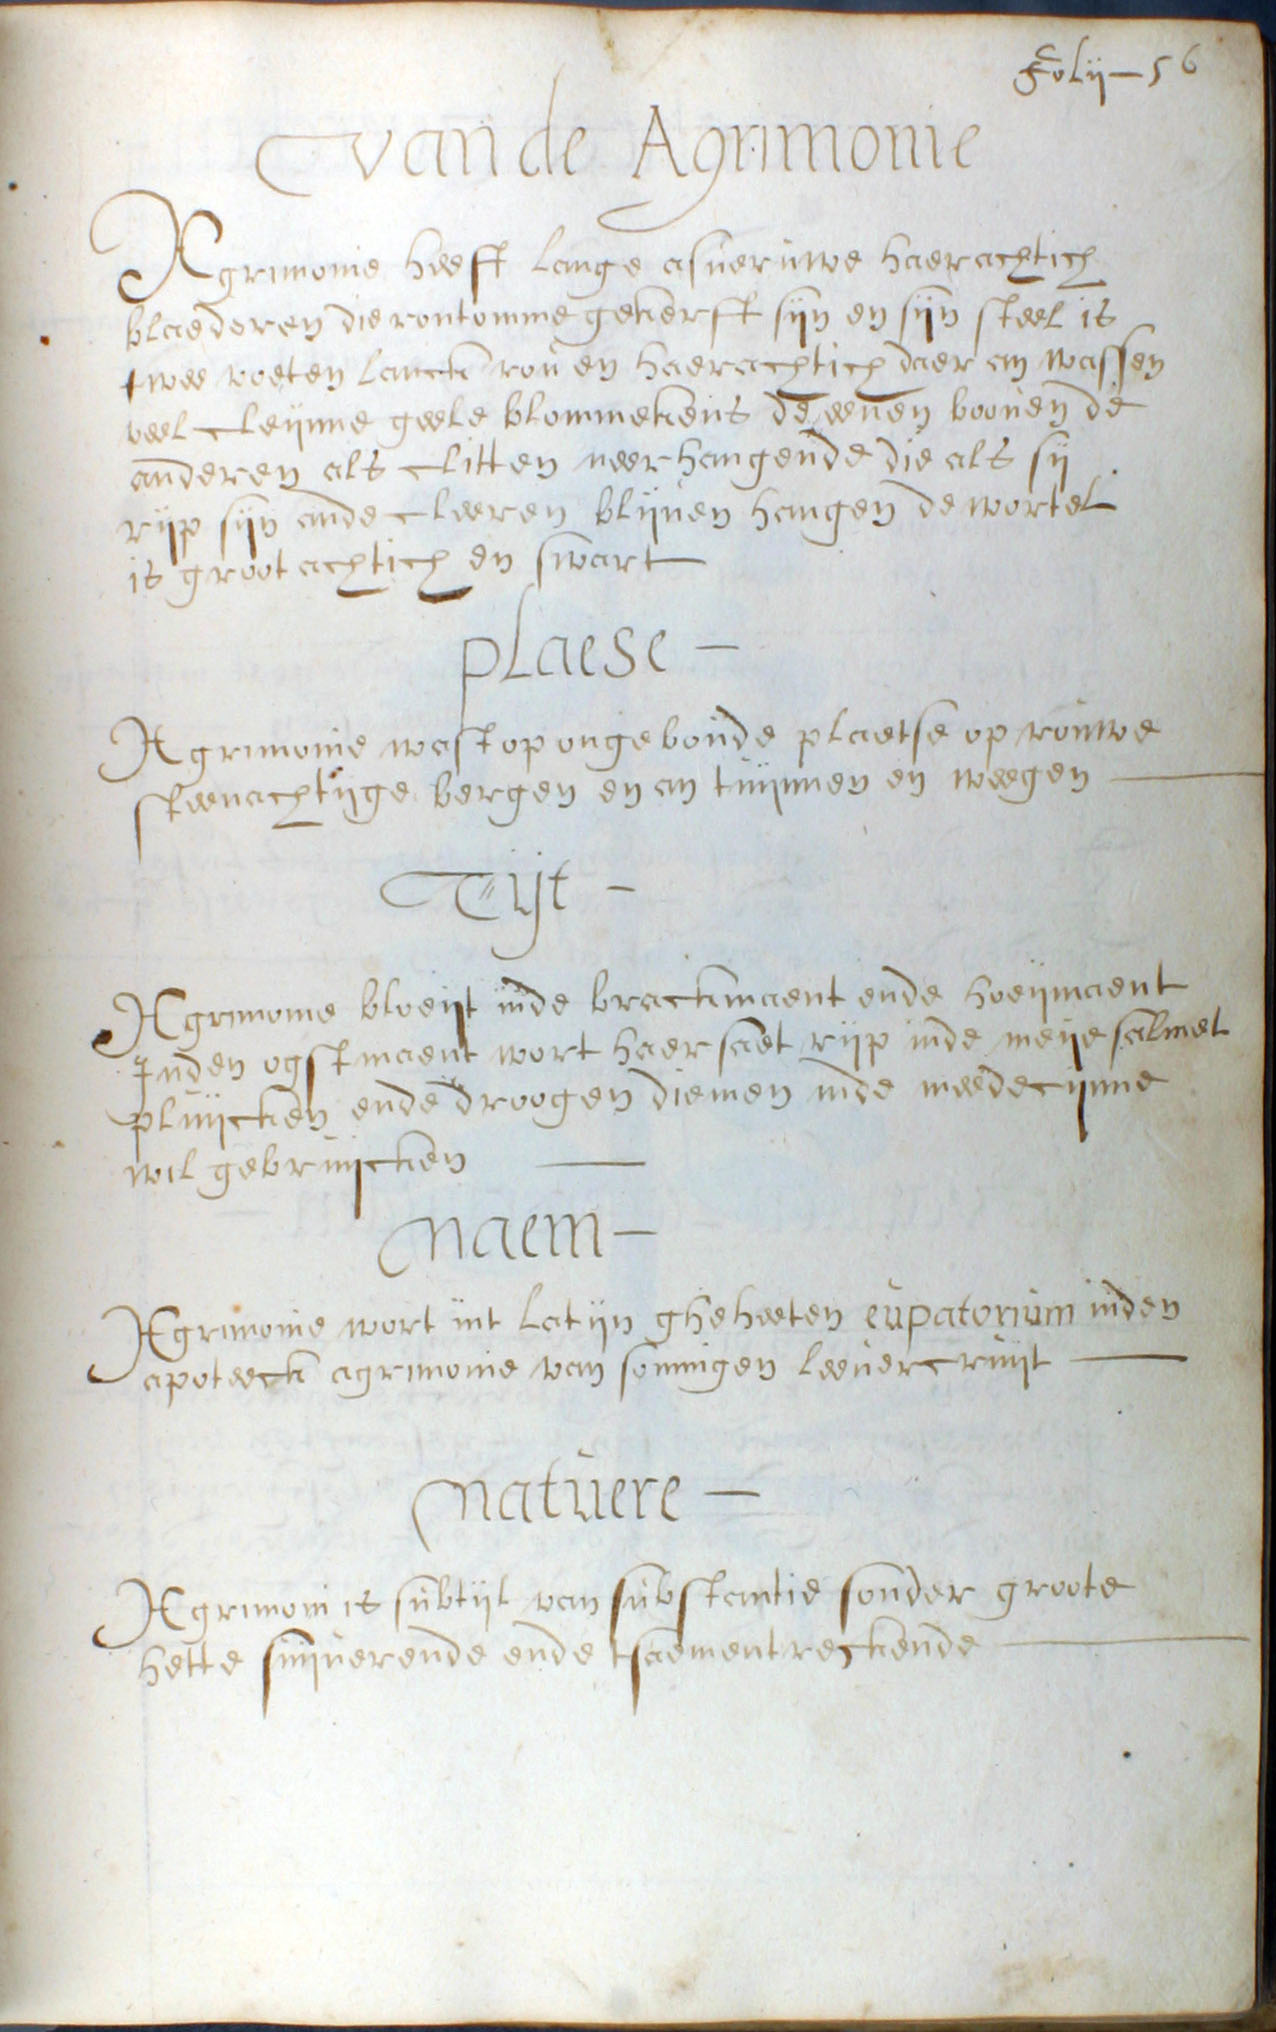 Folij — 56
Van de Agrimonie
Agrimonie heeft lange asueruwe haerachtich
blaederen die rontomme gekerft sijn en sijn steel is
twee voeten lanck rou en haerachtich daer an wassen
veel cleijnne geele blommekens de eenen boouen de
anderen als clitten neerhangende die als sij
rijp sijn ande cleeren blijuen hangen de wortel
is grootachtich en swart
plaese —
Agrimonie wast op ongeboude plaetse op rouwe
steenachtijge bergen en an tuijnnen en weegen
Tijt —
Agrimonie bloeijt inde brackmaent ende hoeijmaent
Inden ogstmaent wort haer saet rijp inde meije salmet
pluijcken ende droogen diemen inde meedecijnne
wil gebruijcken
Naem —
Agrimonie wort int latijn gheheeten eupatorium inden
apoteeck agrimonie van sommigen leeuercruijt
Natuere —
Agrimoni is subtijl van substantie sonder groote
hette suijuerende ende tsaementreckende